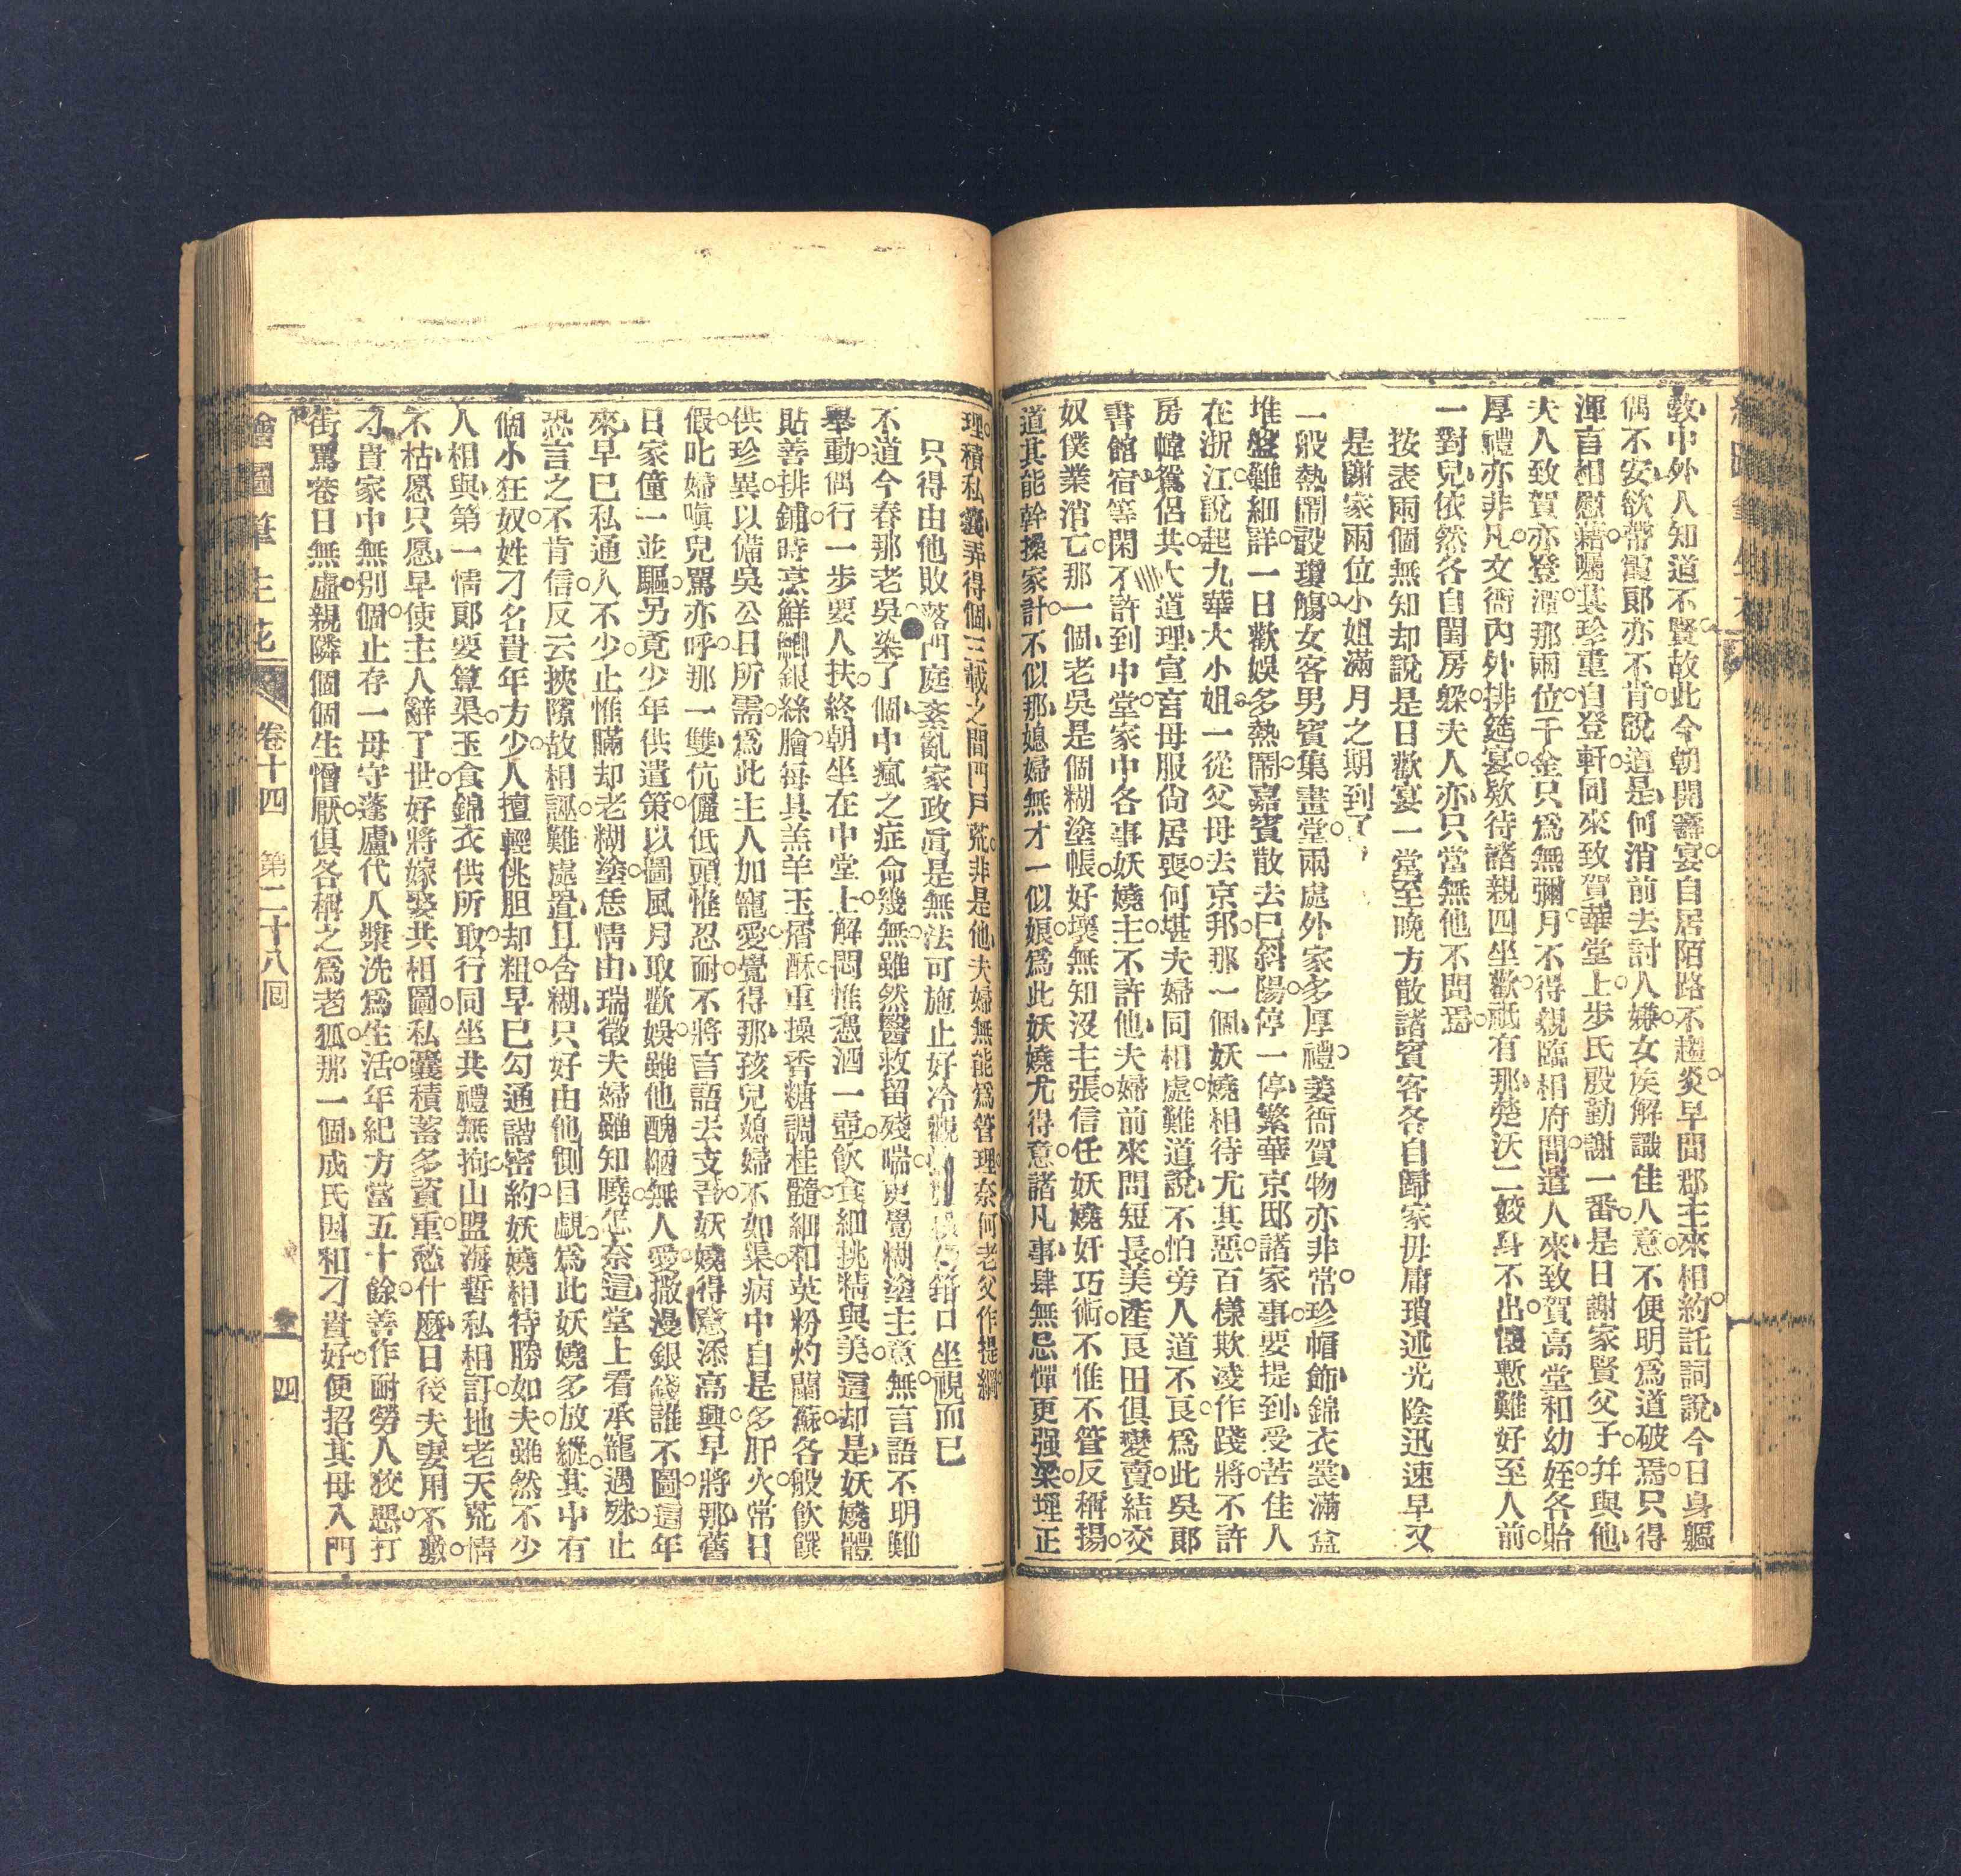 敎中外人知道不賢故此今朝開壽宴自居陌路不趨炎早間郡主來相約託詞說今日身軀
偶不安欲帶霞郞亦不肯說道是何消前去討人嫌女侯解識佳人意不便明爲道破焉只得
渾言相慰藉囑其珍重自登軒同來致賀華堂上步氏殷勤謝一番是日謝家賢父子幷與他
夫人致賀亦登潭那兩位千金只爲無彌月不得親臨相府間遣人來致賀高堂和幼姪各貽
厚禮亦非凡女衙內外排筵宴欵待諸親四坐歡祇有那楚沃二姣身不出懷慙難好至人前
一對兒依然各自閨房躱夫人亦只當無他不問焉
按表兩個無知却說是日歡宴一堂至晚方散諸賓客各自歸家毋庸瑣述光陰迅速早又
是謝家兩位小姐滿月之期到了
一般熱鬧設瓊觴女客男賓集畫堂兩處外家多厚禮姜衙賀物亦非常珍帽飾錦衣裳滿盆
堆盤難細詳一日歡娛多熱鬧嘉賓散去已斜陽停一停繁華京邸諸家事要提到受苦佳人
在浙江說起九華大小姐一從父母去京邦那一個妖嬈相待尤其惡百樣欺凌作踐將不許
房幃鴛侶共大道理宣言母服尙居喪何堪夫婦同相處難道說不怕旁人道不良爲此吳郞
書館宿等閑不許到中堂家中各事妖嬈主不許他夫婦前來問短長美產良田俱變賣結交
奴僕業消亡那一個老吳是個糊塗帳好壞無知沒主張信任妖嬈奸巧術不惟不管反稱揚
道其能幹操家計不似那媳婦無才一似娘爲此妖嬈尤得意諸凡事肆無忌憚更强梁堙正
理積私囊弄得個三載之間門戶荒非是他夫婦無能爲管理奈何老父作提綱
只得由他敗落門庭紊亂家政眞是無法可施止好冷觀 箝口坐視而已
不道今春那老吳染了個中瘋之症命幾無雖然醫救留殘喘更覺糊塗主意無言語不明難
舉動偶行一步要人扶終朝坐在中堂上解悶惟憑酒一壺飲食細挑精與美這却是妖嬈體
貼善排鋪時烹鮮鯽銀絲膾每具羔羊玉屑酥重操香糖調桂髓細和英粉灼蘭蘇各般飲饌
供珍異以備吳公日所需爲此主人加寵愛覺得那孩兒媳婦不如渠病中自是多肝火常日
假叱婦嗔兒罵亦呼那一雙伉儷低頭惟忍耐不將言語去支吾妖嬈得意添高興早將那舊
日家僮一並驅另竟少年供遣策以圖風月取歡娛雖他醜陋無人愛撒漫銀錢誰不圖這年
來早已私通人不少止惟瞞却老糊塗恁情由瑞徵夫婦雖知曉怎奈這堂上看承寵過殊止
恐言之不肯信反云挾隙故相誣難處置且含糊只好由他側目覷爲此妖嬈多放縱其中有
個小狂奴姓刁名貴年方少人擅輕佻胆却粗早已勾通諧密約妖嬈相待勝如夫雖然不少
人相與第一情郞要算渠玉食錦衣供所取行同坐共禮無拘山盟海誓私相訂地老天荒情
不枯愿只愿早使主人辭了世好將嫁娶共相圖私囊積蓄多資重愁什麼日後夫妻用不敷
刁貴家中無別個止存一母守蓬廬代人漿洗爲生活年紀方當五十餘善作耐勞人狡惡打
街罵巷日無虛親隣個個生憎厭俱各稱之爲老狐那一個成氏因和刁貴好便招其母入門
繪圖筆生花 卷十四 第二十八回 四